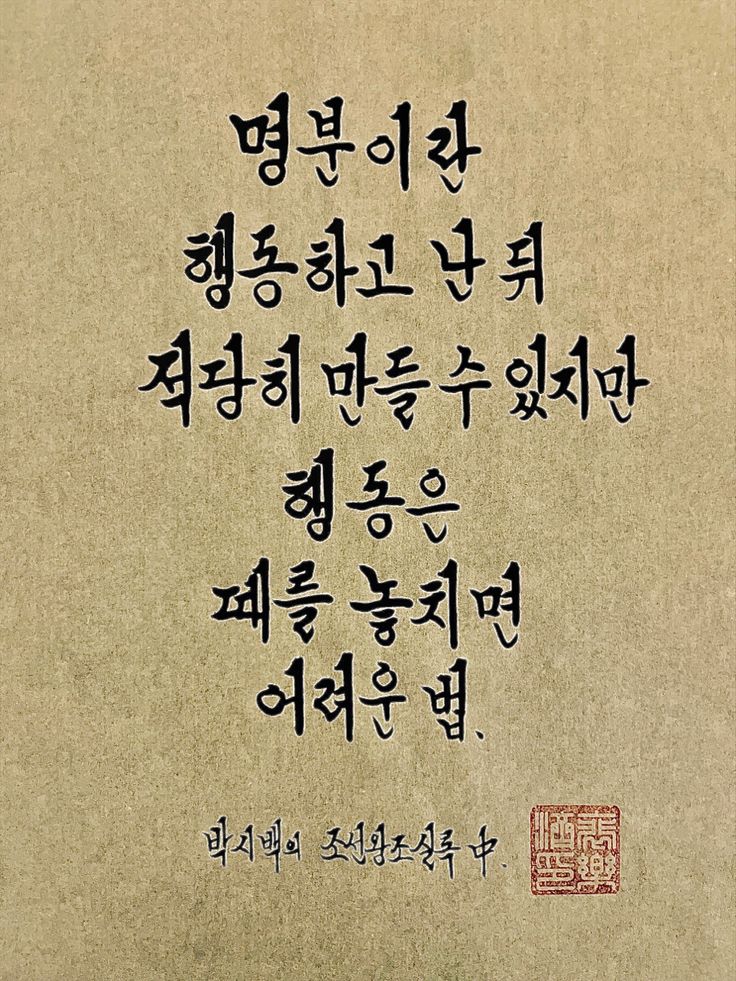 명분이란
행동하고 난 뒤
적당히 만들 수 있지만
행동은
때를 놓치면
어려운 법.
박시백의 조선왕조실록 中.